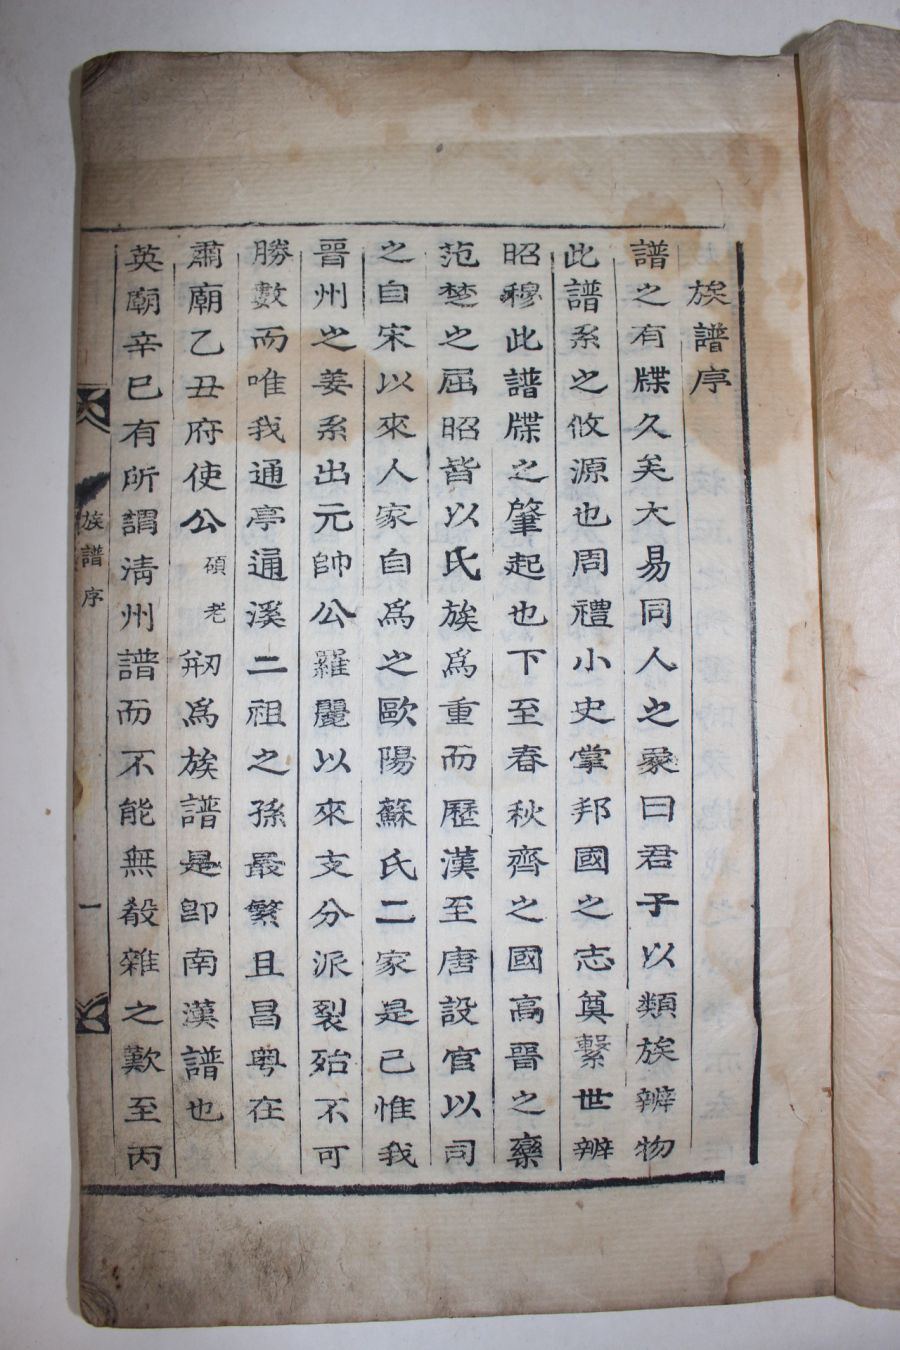 族譜序
譜之有牒久矣大易同人之彖曰君子以類族辨物
此譜系之攸源也周禮小史掌邦國之志奠繫世辨
昭穆此譜牒之肇起也下至春秋齊之國高晉之欒
范楚之屈昭皆以氏族爲重而歷漢至唐設官以司
之自宋以來人家自爲之歐陽蘇氏二家是已惟我
晉州之姜系出元帥公羅麗以來支分派裂殆不可
勝數而唯我通亭通溪二祖之孫最繁且昌粤在
肅廟乙丑府使公碩老刱爲族譜是卽南漢譜也
英廟辛巳有所謂淸州譜而不能無殽雜之歎至丙
族譜序
一